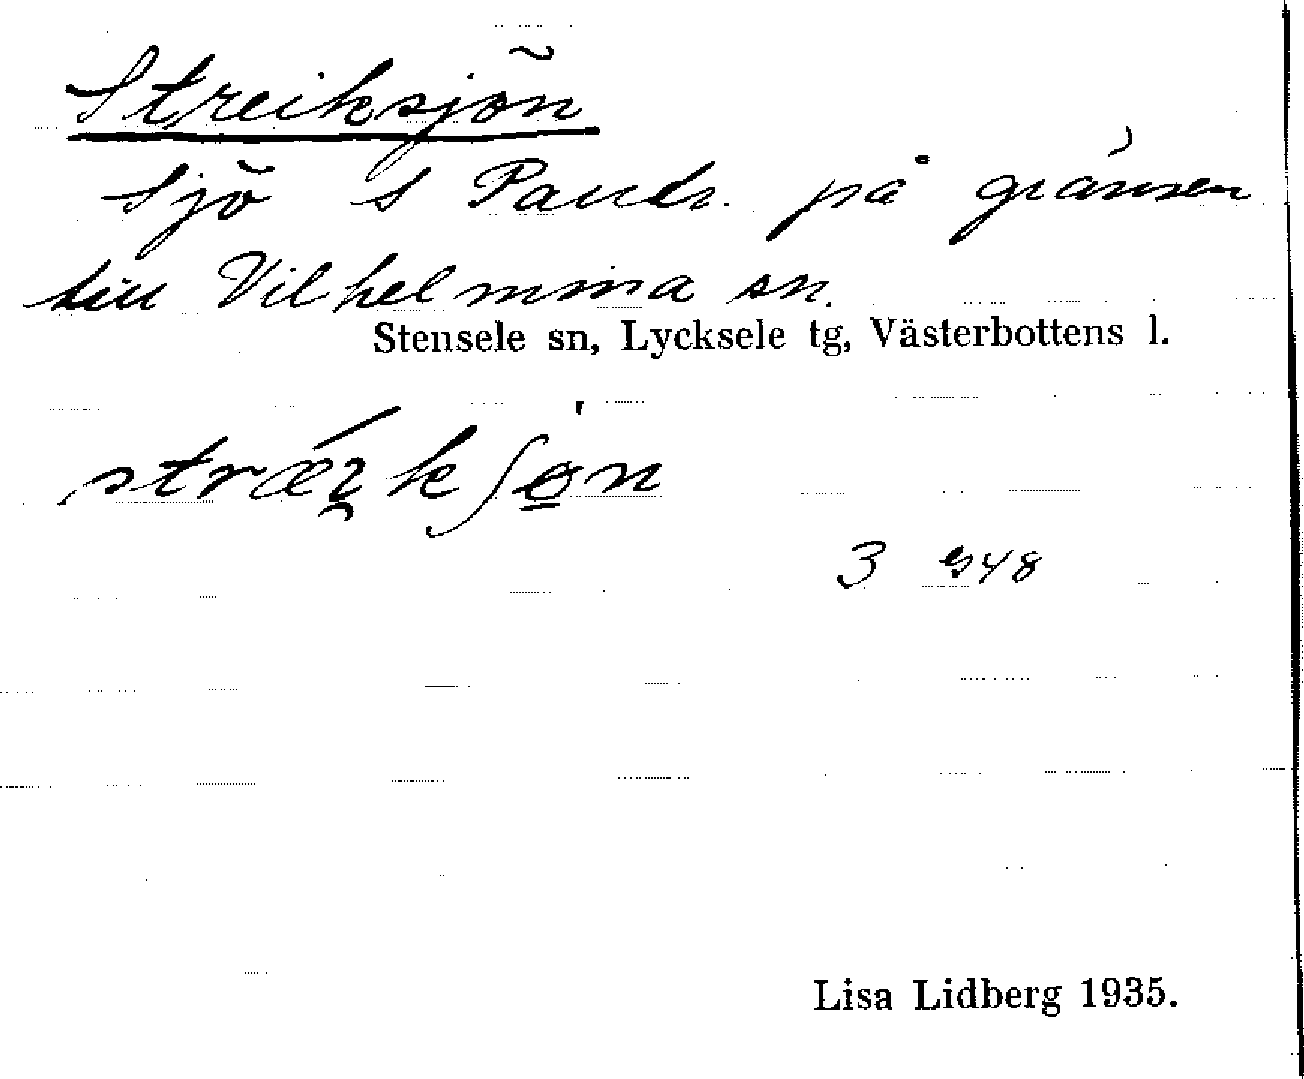 Streiksjön
sjö s Pauts. på gränsen
till Vilhelmina sn.
Stensele sn, Lycksele tg, Västerbottens l.
3 948
Lisa Lidberg 1935.